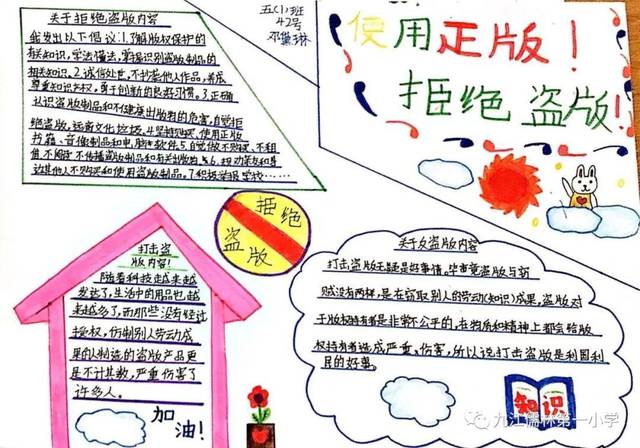 关于拒绝盗版内容
我发出以下倡议:1.了解版权保护的
有关知识,学法懂法,掌握识别盗版制品的
相关知识。2.诚信处世,不抄袭他人作品,养成
尊重知识产权,勇于创新的良好习惯。3.正确
认识盗版制品和不健康出版物的危害,自觉拒
绝盗版,远离文化垃圾。4.坚持购买、使用正版
书籍、音像制品和电脑软件。5.自觉做不购买、不租
借、不阅读、不传播盗版制品和有关出版物。6.
其他人不购买和使用盗版制品。7.积极举报学校……
五(1)班
42号
邓黛琳
使用正版!
拒绝盗版!
拒绝
盗版
打击盗
版内容!
随着科技越来越
发达了,生活中的用品也越
来越多了,而那些没有经过
授权,伤制别人劳动成
果的人制造的盗版产品更
是不计其数,严重伤害了
许多人。
加
油!
关于反盗版内容
打击盗版无疑是好事情。毕竟盗版与窃
贼没有两样,是在窃取别人的劳动(知识)成果,盗版对
于版权持有者是非常不公平的,在物质和精神上都会给版
权持有者造成严重伤害,所以说打击盗版是利国利
民的好事。
知识
九江儒林第一小学